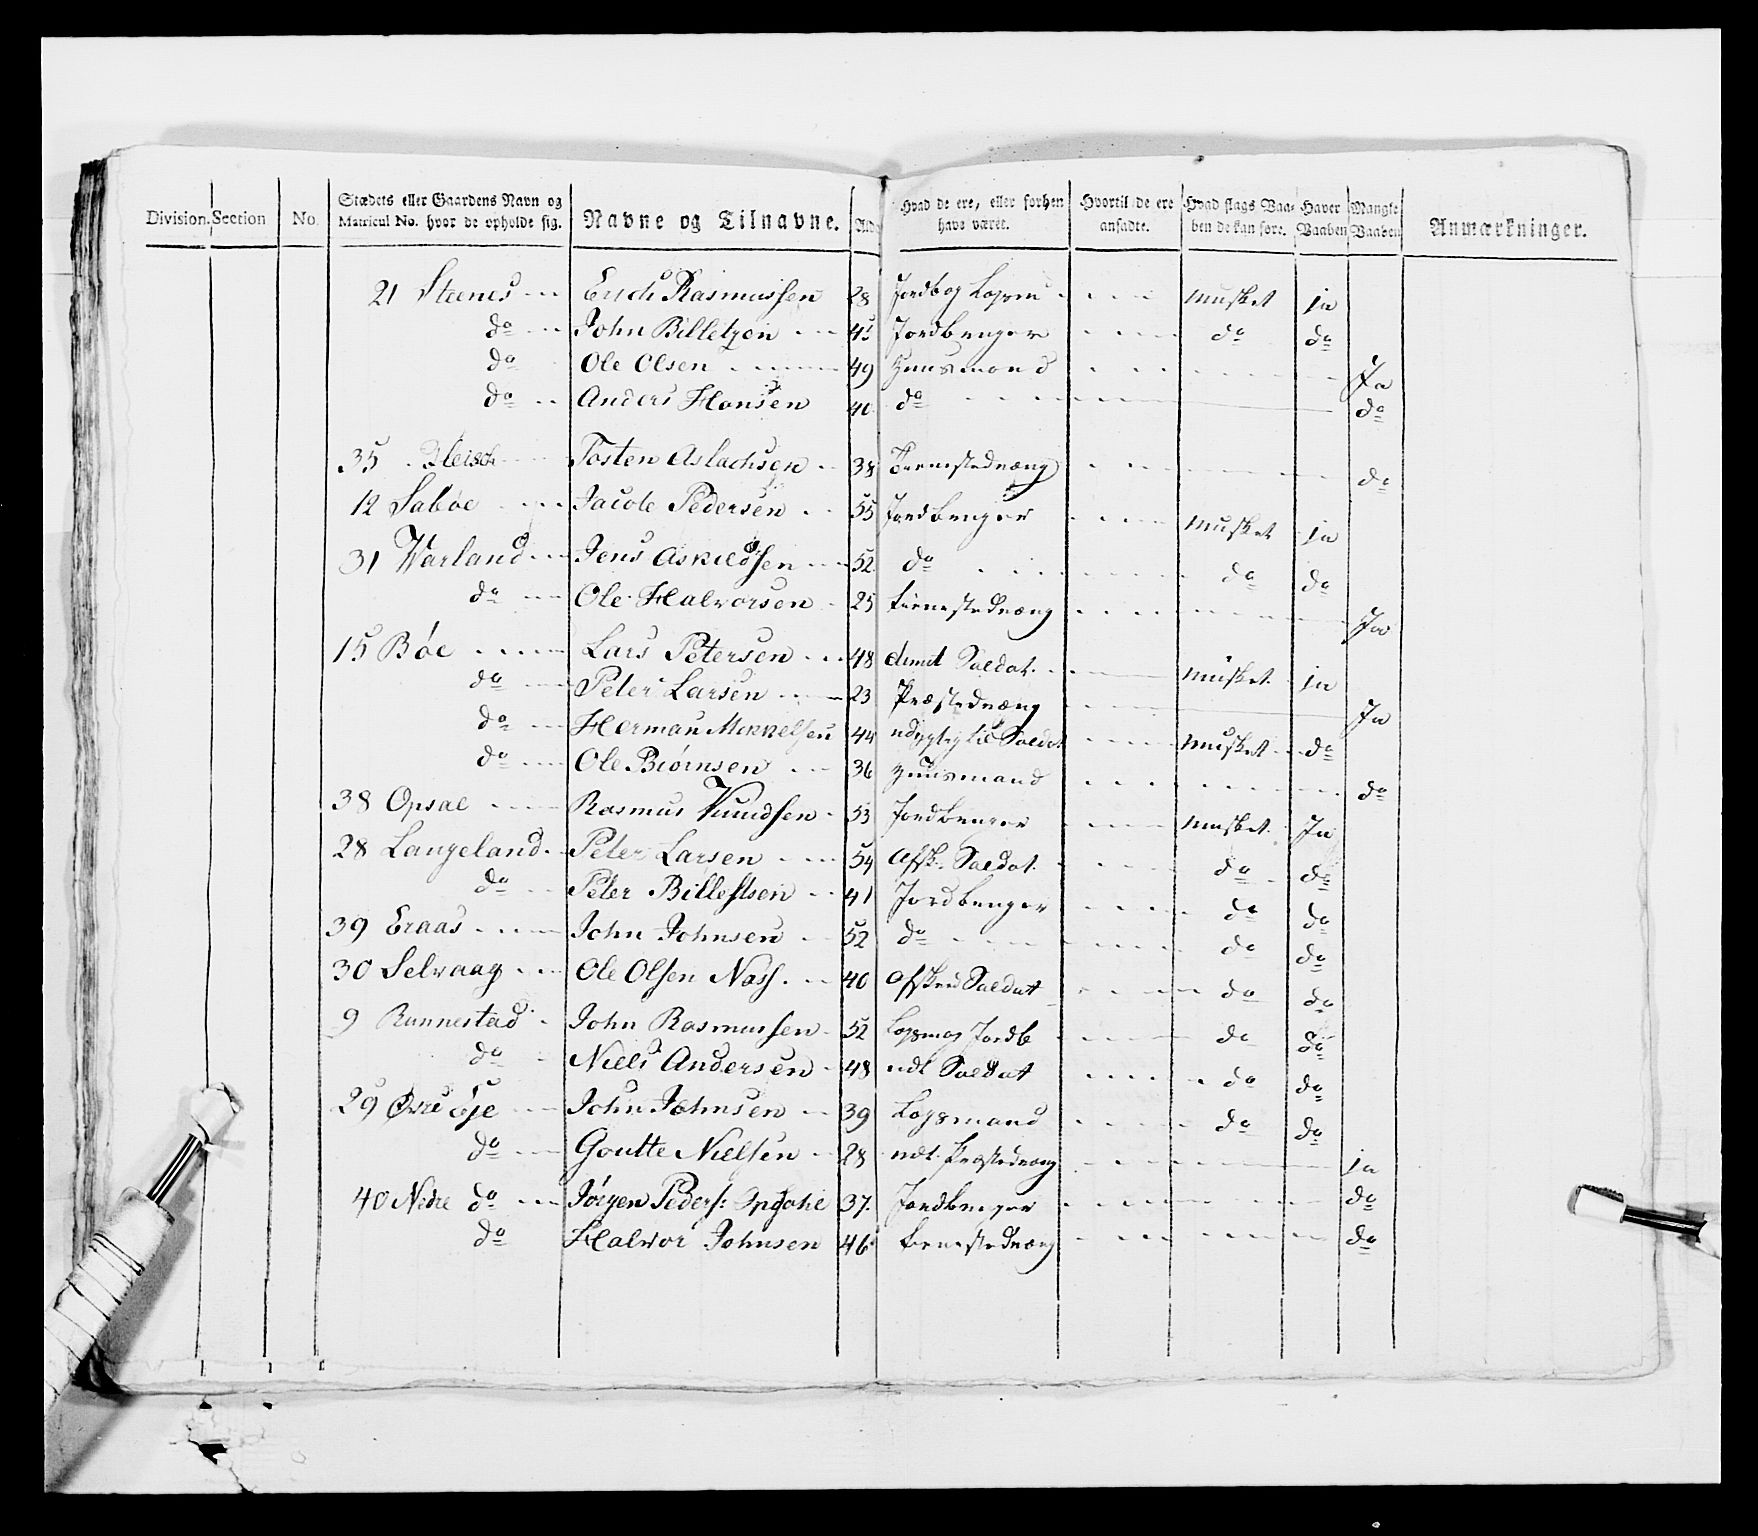 Division. Section No. Stædets eller Gaardens Navn og Matricul No. hvor de opholde sig. Navne og Tilnavne. Ald. Hvad de ere, eller forhen have været. Hvortil de ere ansadte. Hvad slags Vaaben de kan føre. Haver Vaaben Mangle Vaaben Anmærkninger.
21 Steenes Erich Rasmussen 28 Musket ja
do John Billetzen Jordbruger do do
do Ole Olsen 49 Huusmand Ja
do Anders Hansen 40 do do
35 Tosten Aslachsen 38 do
12 Saboe Jacob Pedersen 55 Jordbruger Musket ja
31 Warland Jens Askildsen 52 do do do
do Ole Halvorsen 25 Ja
15 Bøe Lars Petersen 48 dimt Soldat Musket ja
do Peter Larsen 23 Præstedræng Ja
do Herman Mikkelsen 44 Soldat Musket do
do Ole Biørnsen 36 Huusmand do
38 Opsal Rasmus Knudsen 53 Jordbruger Musket Ja
28 Langeland Peter Larsen 54 Afsk. Soldat do do
do Peter Billeftsen 41 Jordbruger do do
39 Eraas John Johnsen 52 do do do
30 Selvaag Ole Olsen Næss 40 Afsked Soldat do do
9 Runnestad John Rasmussen 52 Logsm og Jordb do do
do Niels Andersen 48 udt Soldat do do
29 Øvre Eje John Johnsen 39 Logsmand do do
do Goutte Nielsen 28 udt. ja
40 Nedre do Jørgen Peders: 37 Jordbruger do
do Halvor Johnsen 46 do